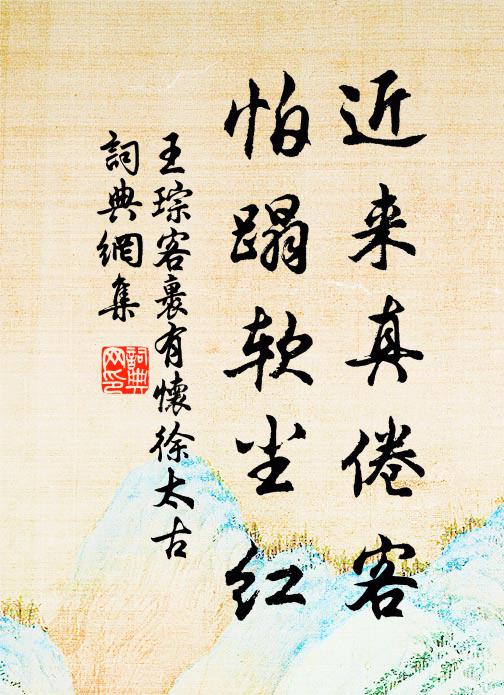 近来真倦客
怕蹋软尘红
王琮客裹有懷徐太古
詞典網集
詞典網印